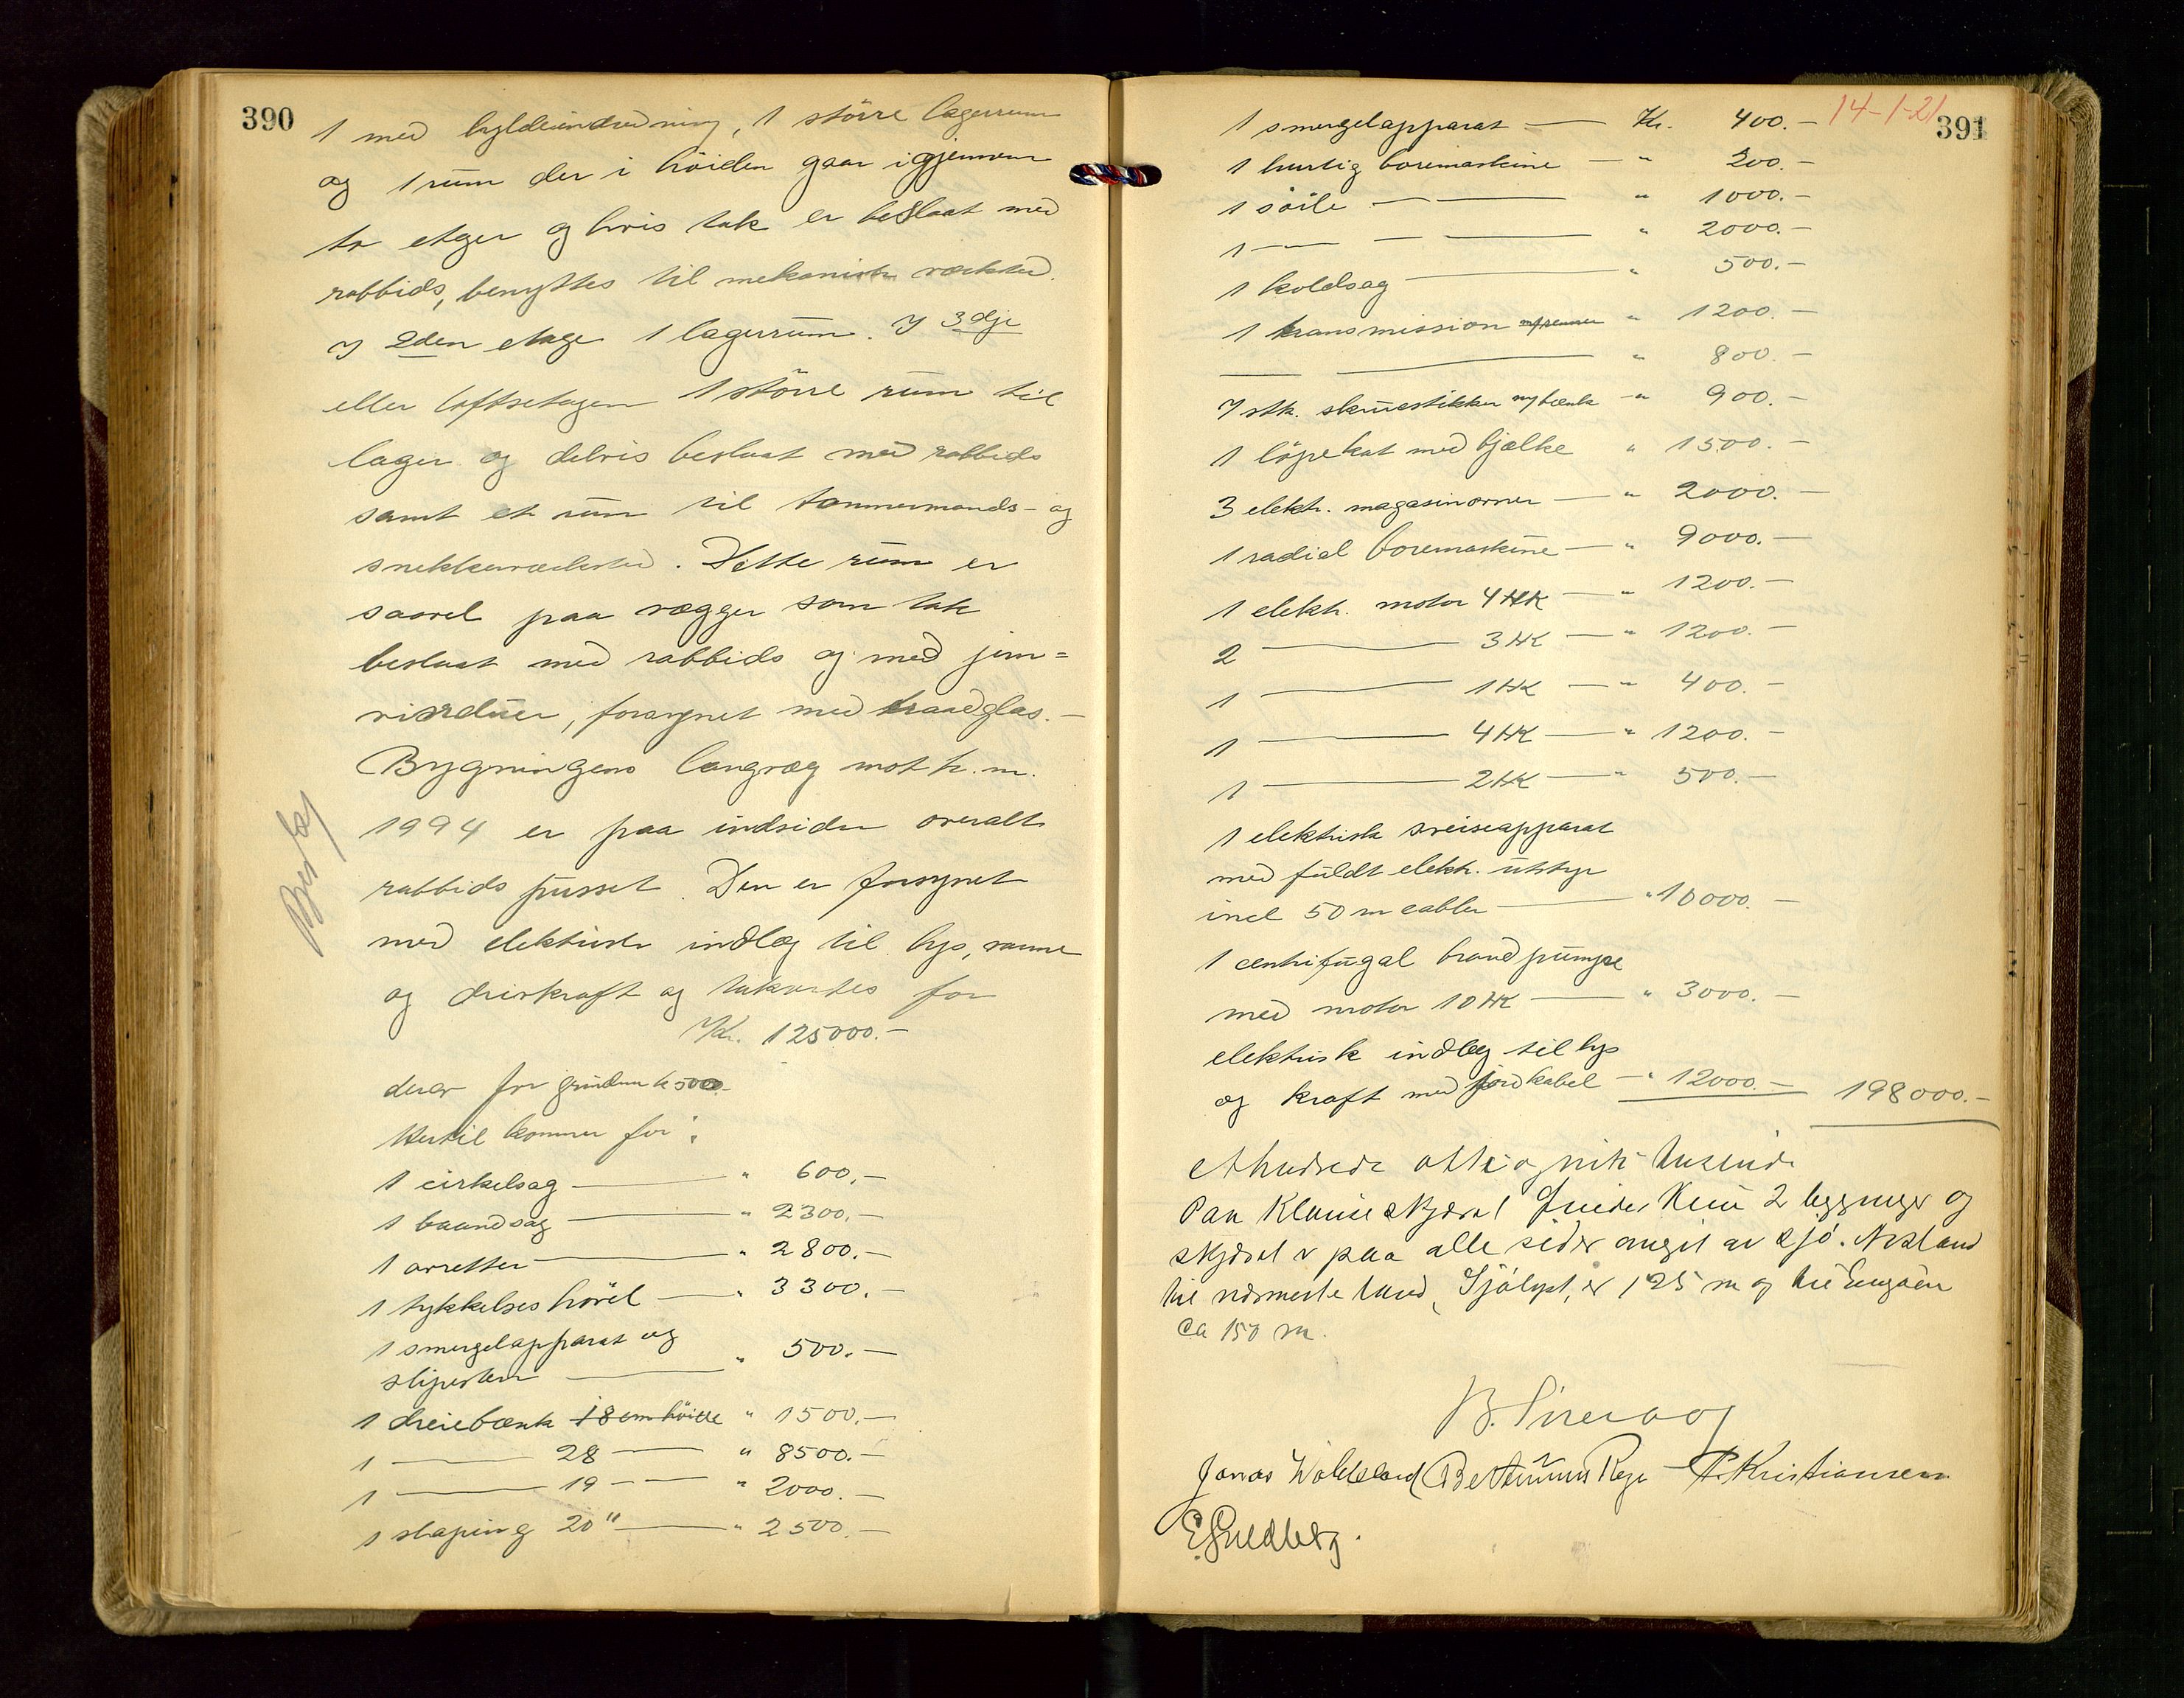 390
1 med hyldeindredning, 1 större lagerrum
og 1 rum der i höiden gaar igjennem
to etger og hvis tak er beslaat med
rabbids, benyttes til mekanisk verksted.
I 2den etage 1 lagerrum. I 3dje
eller loftsetagen 1 större rum til
lager og delvis beslaat med rabbids
samt et rum til tømmermands- og
snekkerverksted. Dette rum er
saavel paa vægger som tak
beslaat med rabbids og med jern=
vinduer, forsynet med traadglas.-
Bygningens langvæg mot h.m.
1994 er paa indsiden overalt
rabbids pusset. Den er forsynet
med elektrisk indlæg til lys, varme
og drivkraft og taksertes for
Kr. 125000.-
derav for grunden k 500.-
Hertil kommer for:
1 cirkelsag — " 600.-
1 baandsag — " 2300.-
1 avretter — " 2800.-
1 tykkelseshövel — " 3300.-
1 smergelapparat og
slipesten — " 500.-
1 dreiebænk 18 cm höide " 1500.-
1 — 28 — " 8500.-
1 — 19 — " 2000.-
1 shaping 20" — " 2500.-
14-1-21
391
1 smergelapparat — Kr. 400.-
1 hurtig boremaskine — " 200.-
1 söile — — " 1000.-
1 — — — " 2000.-
1 koldsag — " 500.-
1 transmission m/remmer " 1200.-
— — " 800.-
7 stk. skruestikker m/bænk - " 900.-
1 löpekat med bjælke " 1500.-
3 elekh. magasinovner — " 2000.-
1 radial boremaskine — " 9000.-
1 elekh. motor 4 HK — " 1200.-
2 — 3 HK — " 1200.-
1 — 1 HK — " 400.-
1 — 4 HK — " 1200.-
1 — 2 HK — " 500.-
1 elektrisk sveiseapparat
med fuldt elekh. utstyr
incl 50 m cabler — " 10000.-
1 centrifugal brandpumpe
med motor 10 HK — " 3000.-
elektrisk indlæg til lys
og kraft med jordkabel — " 12000.- 198000.-
ethundrede otte og nitti tusinde
Paa skjæret findes kun 2 bygninger og
skjæret er paa alle sider omgit av sjö. Avstand
til nærmeste land, Sjölyst, er 125 m og til Engöen
ca 150 m.
Jonas Waldeland Rege P. Kristiansen
E. Guldberg.